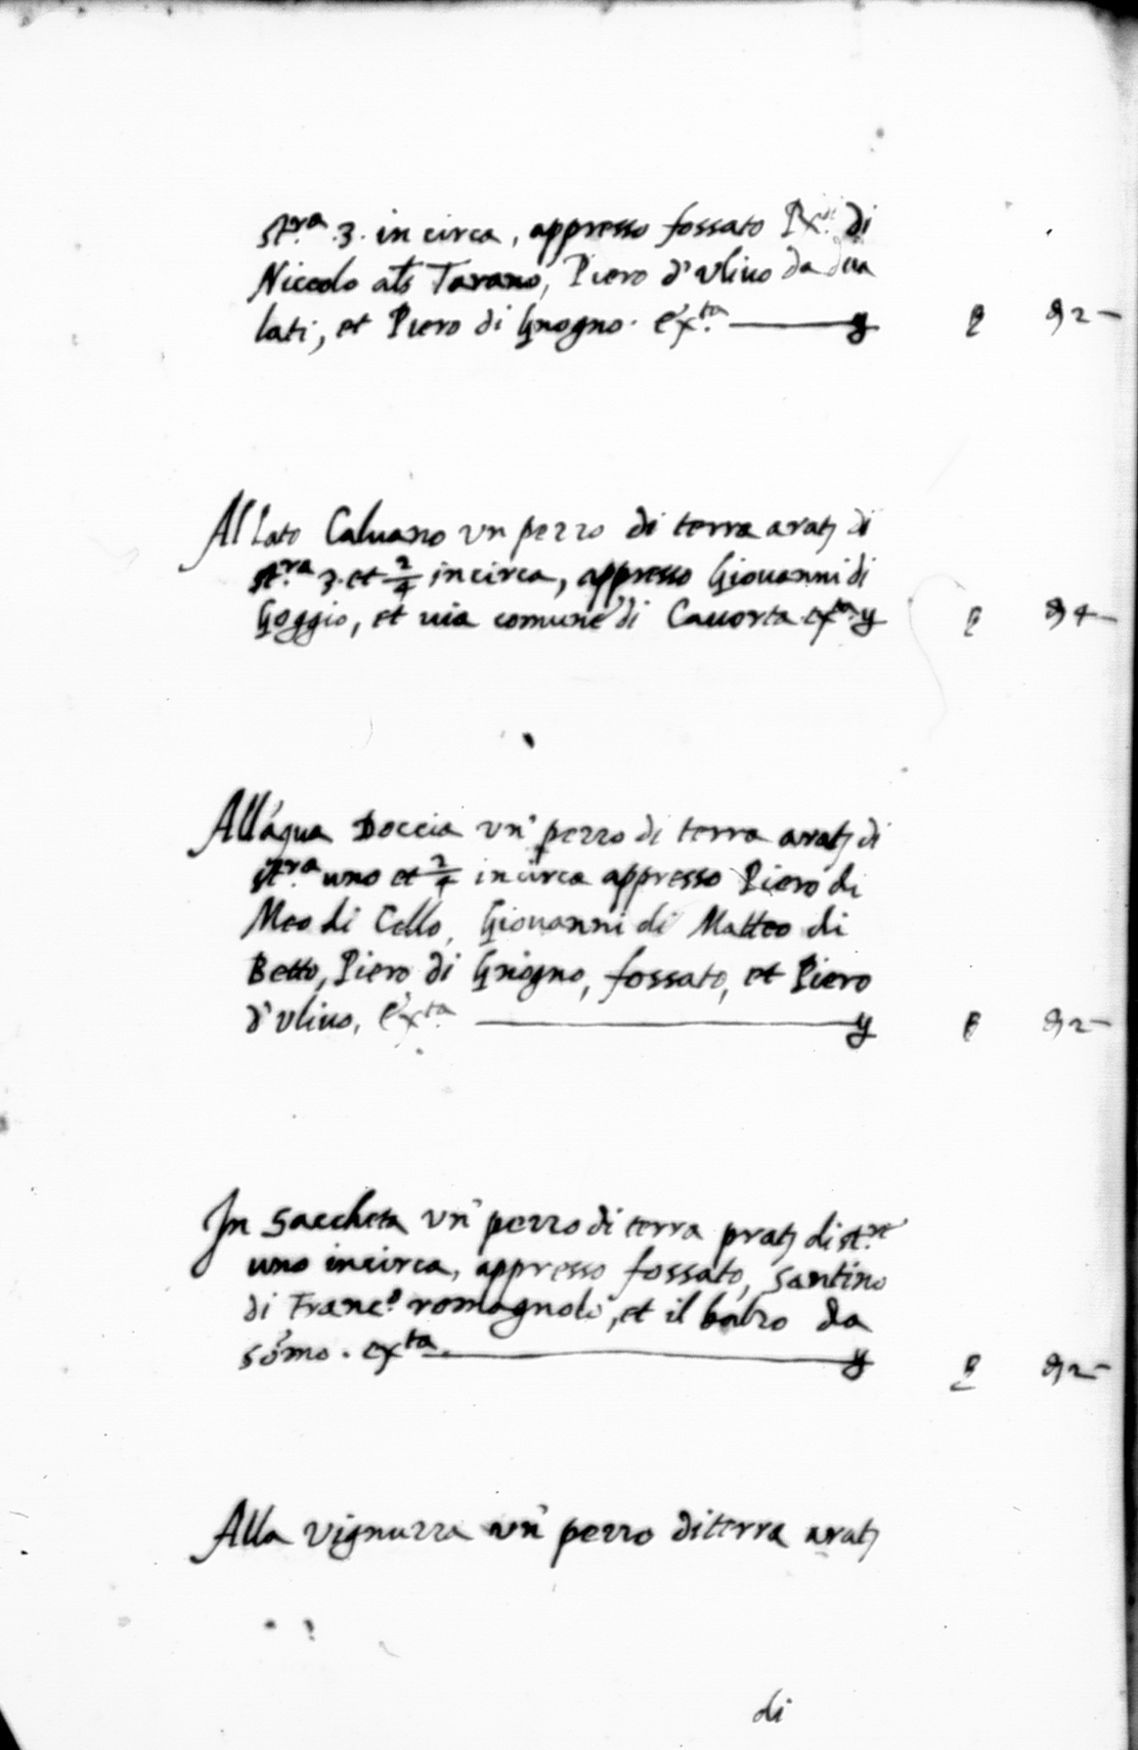 st.ra 3. in circa, appresso fossato Rx.di di
Niccolo als Tarano, Piero d'ulivo da dua
lati, et Piero di Gnogno. Ex.ta ——— y
Al Lato Caluano un pezzo di terra arat. di
st.ra 3. et 2/4 incirca, appresso Giouanni di
Goggio, et uia comune di Cauorta ex.ta y 4 —
All'aqua Doccia un' pezzo di terra arat. di
st.ra uno et 2/4 incirca appresso Piero di
Meo di Cello, Giouanni di Matteo di
Betto, Piero di Gniogno, fossato, et Piero
d'uliuo, Ex.ta ——— y 2 —
In Saccheta un' pezzo di terra prat. di st.re
uno incirca, appresso fossato, Santino
di Franc.o romagnolo, et il balzo da
somo. ex.ta ——— y 2 —
Alla vignuzza un' pezzo di terra arat.
di